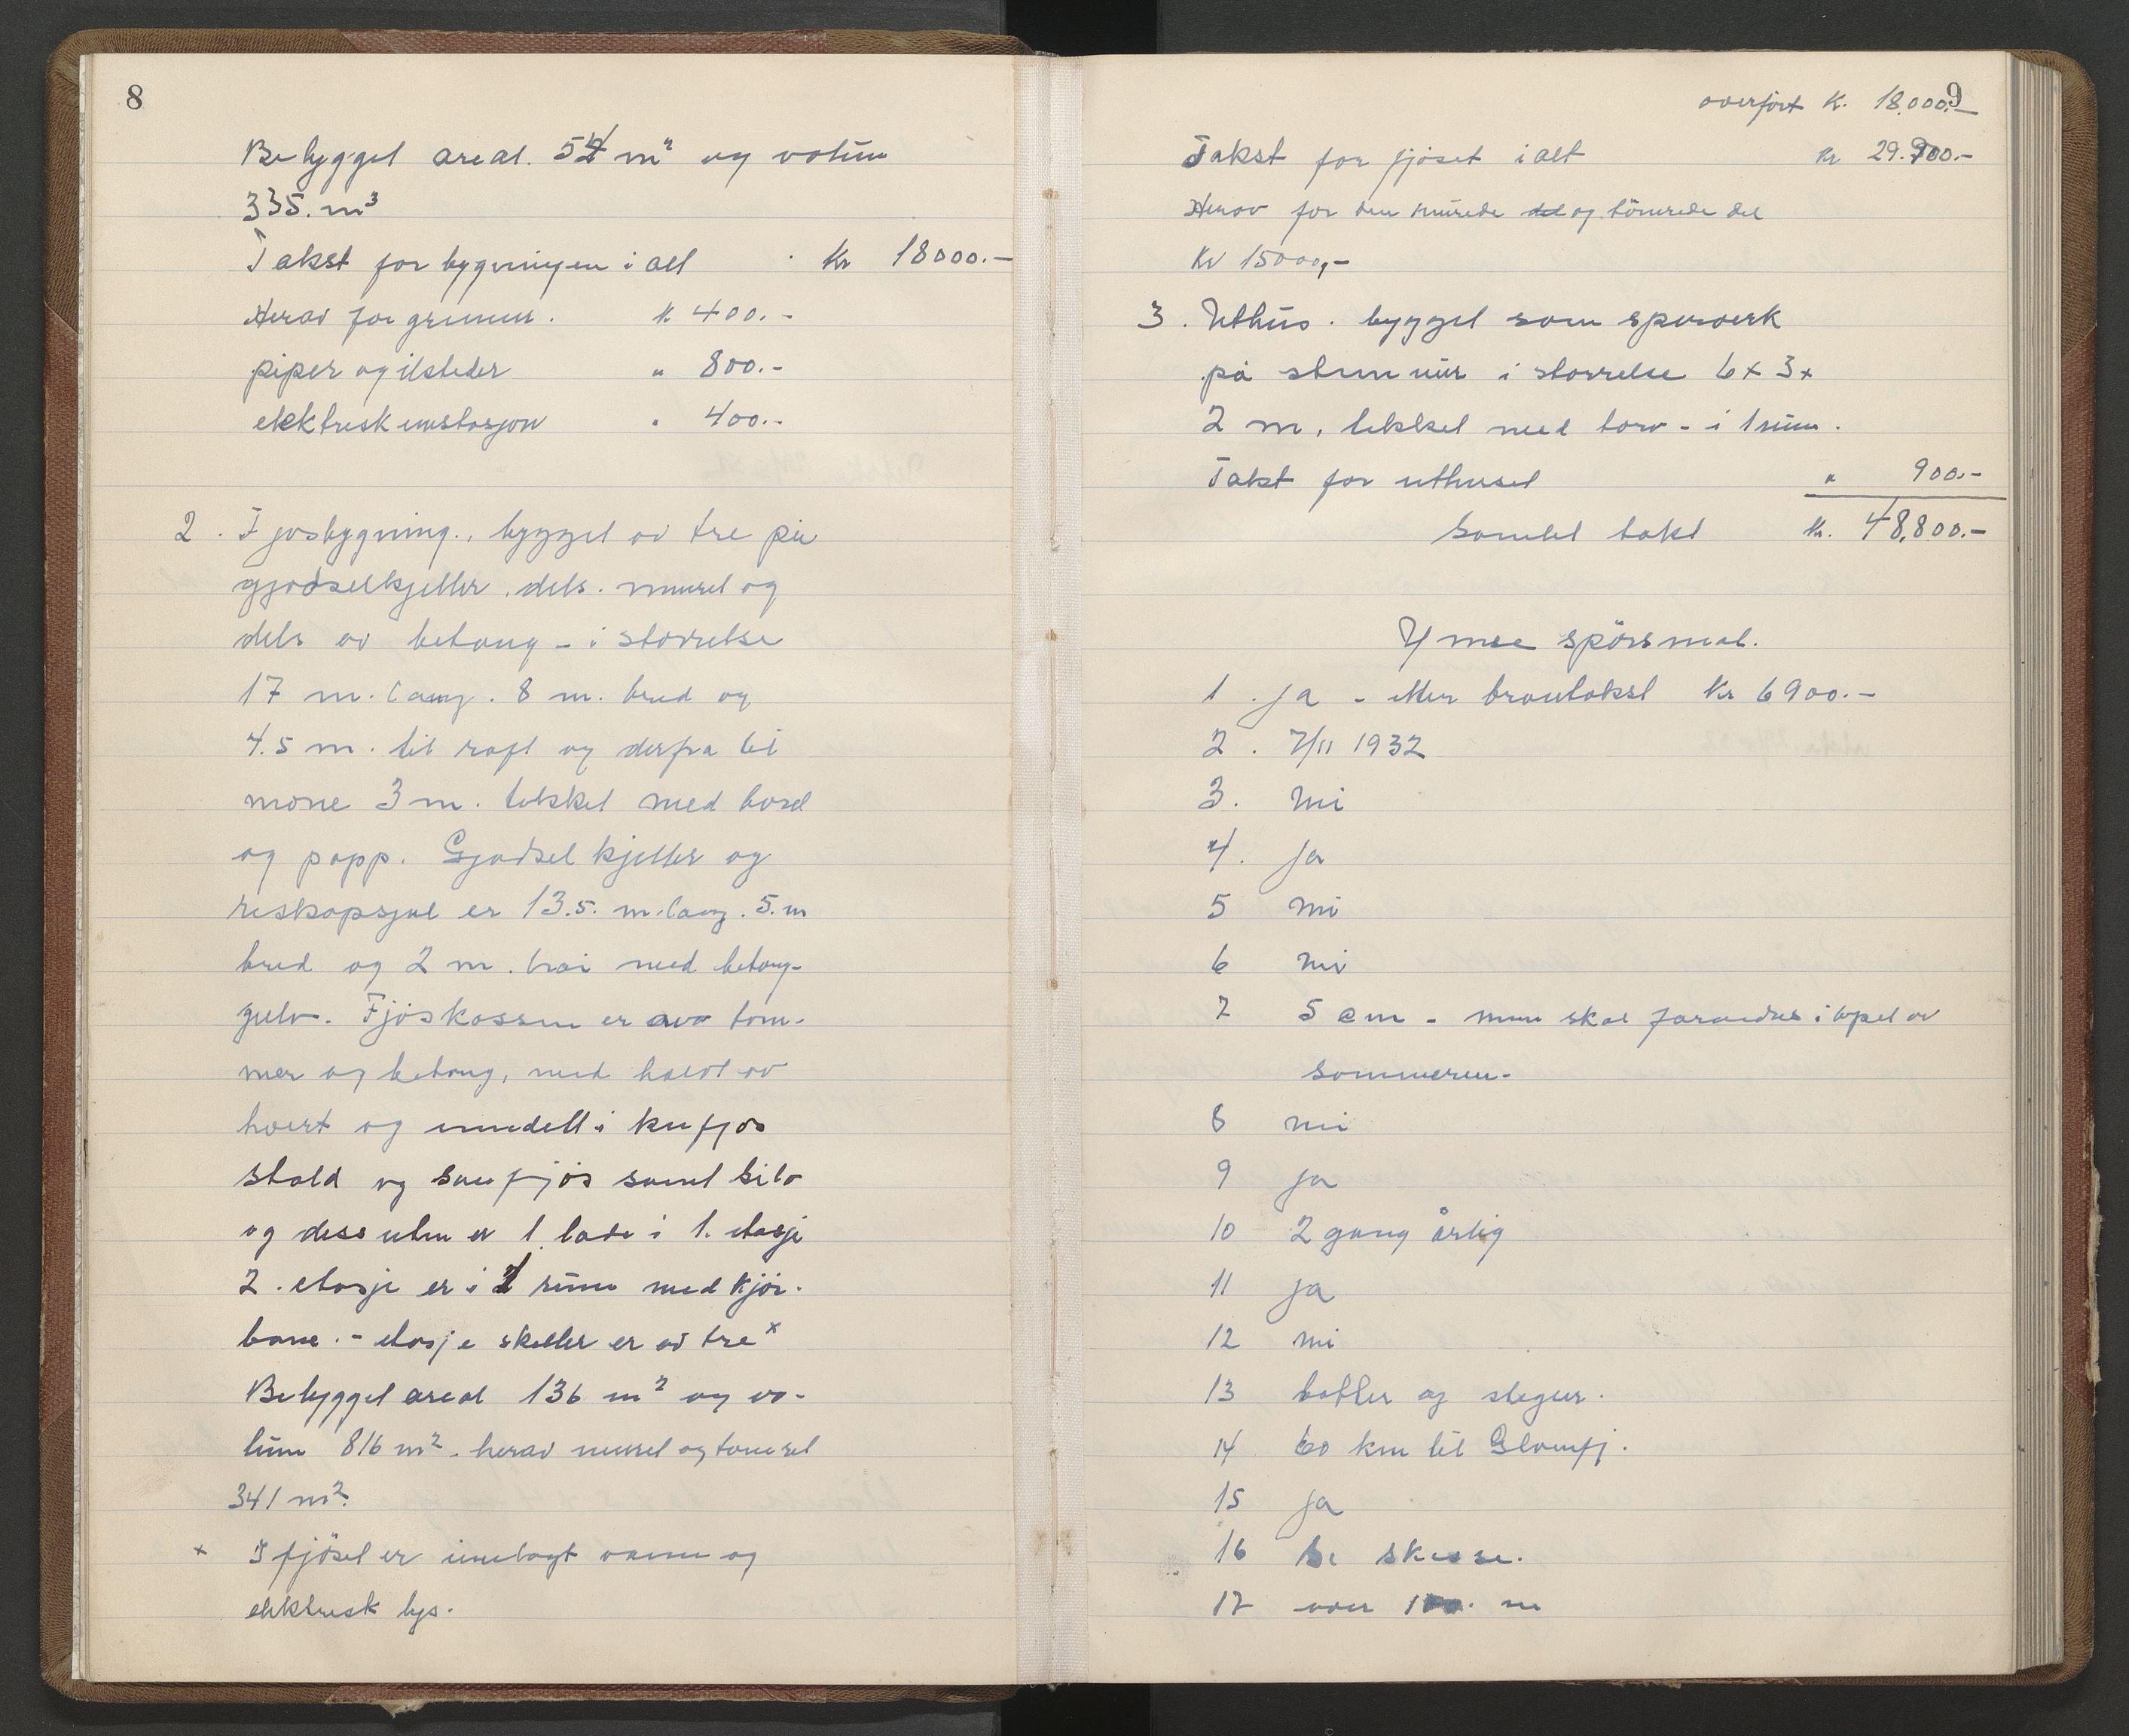 8
Bebygget areal. 54 m² og volum
335. m³
Takst for bygningen i alt Kr 18000.-
Herav for grunmur. k 400.-
piper og ildsteder " 800.-
elektrisk instasjon " 400.-
2. Fjosbygning., bygget av tre på
gjødselkjeller, dels. muret og
dels av betong - i størrelse
17 m. lang. 8 m. bred og
4.5 m. til raft og derfra til
møne 3 m. tekket med bord
og papp. Gjødselkjeller og
reskapsjul er 13.5. m. lang. 5. m
bred og 2 m. høi med betong-
gulv. Fjöskassen er av töm-
mer og betong, med halvt av
hvert og inndelt i kufjos
stald og saufjös samt silo
og dessuten er 1 lade i 1. etasje
2. etasje er i 1 rüm med kjör-
bane. - etasjeskeller er av tre x
Bebygget areal 136 m² og vo-
lüm 816 m². herav muret og tömret
341 m².
x I fjöset er innlagt vann og
elektrisk lys.
9
overfört K. 18.000.-
Takst for fjöset i alt Kr 29.900.-
Herav for den murede del og tömrede del
Kr 15000,-
3. Uthüs. bygget som sperverk
på stenmür i størrelse 6 x 3 x
2 m, tekket med torv - i 1 rüm.
Takst for uthuset " 900.-
Samlet takst kr. 48,800.-
Ymse spörsmal.
1. Ja - etter branntakst Kr 6900.-
2. 7/11 1932
3. Nei
4. Ja
5 Nei
6 Nei
7 5 cm - men skal forandres i löpet av
sommeren.
8 nei
9 Ja
10 2 gang årlig
11 Ja
12 nei
13 bøtter og steguer.
14 60 km til Glomfj.
15 Ja
16 Se skisse.
17 over 100. m